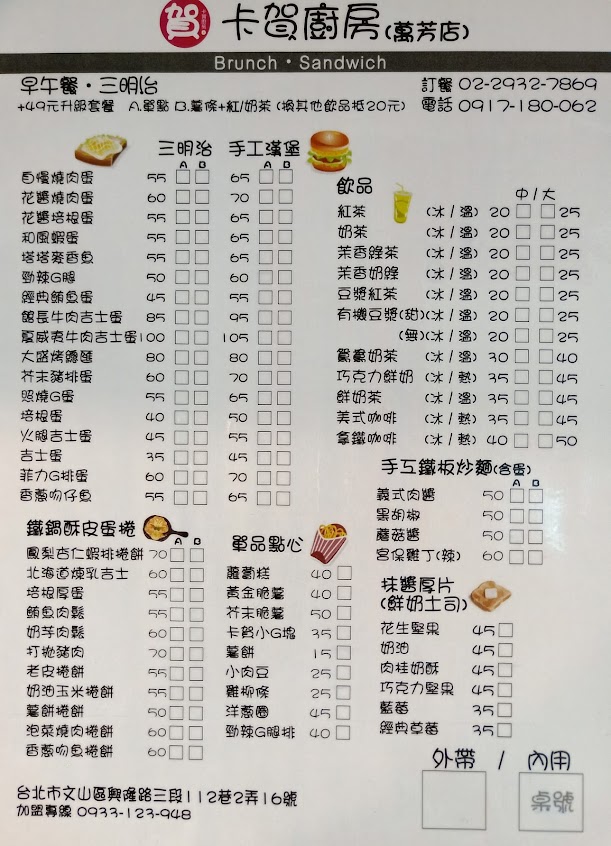 賀
卡賀廚房(萬芳店)
Brunch • Sandwich
早午餐・三明治
訂餐 02-2932-7869
+49元升級套餐 A.單點 B.薯條+紅/奶茶 (換其他飲品抵20元)
電話 0917-180-062
三明治 手工漢堡
A B A B
自慢燒肉蛋 55 65
花醬燒肉蛋 60 70
花醬培根蛋 55 65
和風蝦蛋 55 65
塔塔麥香魚 55 65
勁辣G腿 50 60
經典鮪魚蛋 45 55
館長牛肉吉士蛋 85 95
夏威夷牛肉吉士蛋 100 105
大盛烤雞蛋 80 80
芥末豬排蛋 60 70
照燒G蛋 55 65
培根蛋 40 50
火腿吉士蛋 45 55
吉士蛋 35 45
菲力G排蛋 60 70
香蔥吻仔魚 55 65
飲品
中/大
紅茶 (冰/溫) 20 25
奶茶 (冰/溫) 20 25
茉香綠茶 (冰/溫) 20 25
茉香奶綠 (冰/溫) 20 25
豆漿紅茶 (冰/溫) 20 25
有機豆漿(甜)(冰/溫) 20 25
(無)(冰/溫) 20 25
鴛鴦奶茶 (冰/溫) 30 40
巧克力鮮奶 (冰/熱) 35 45
鮮奶茶 (冰/溫) 35 45
美式咖啡 (冰/熱) 35 45
拿鐵咖啡 (冰/熱) 40 50
手工鐵板炒麵(含蛋)
A B
義式肉醬 50
黑胡椒 50
蘑菇醬 50
宮保雞丁(辣) 60
鐵鍋酥皮蛋捲
A B
鳳梨杏仁蝦排捲餅 70
北海道煉乳吉士 60
培根厚蛋 55
鮪魚肉鬆 55
奶芋肉鬆 60
打拋豬肉 70
老皮捲餅 55
奶油玉米捲餅 55
薯餅捲餅 50
泡菜燒肉捲餅 60
香蔥吻魚捲餅 60
單品點心
蘿蔔糕 40
黃金脆薯 40
芥末脆薯 50
卡賀小G塊 35
薯餅 15
小肉豆 25
雞柳條 25
洋蔥圈 45
勁辣G腿排 40
抹醬厚片
(鮮奶土司)
花生堅果 45
奶油 45
肉桂奶酥 45
巧克力堅果 45
藍莓 35
經典草莓 35
外帶 / 內用
桌號
台北市文山區興隆路三段112巷2弄16號
加盟專線 0933-123-948